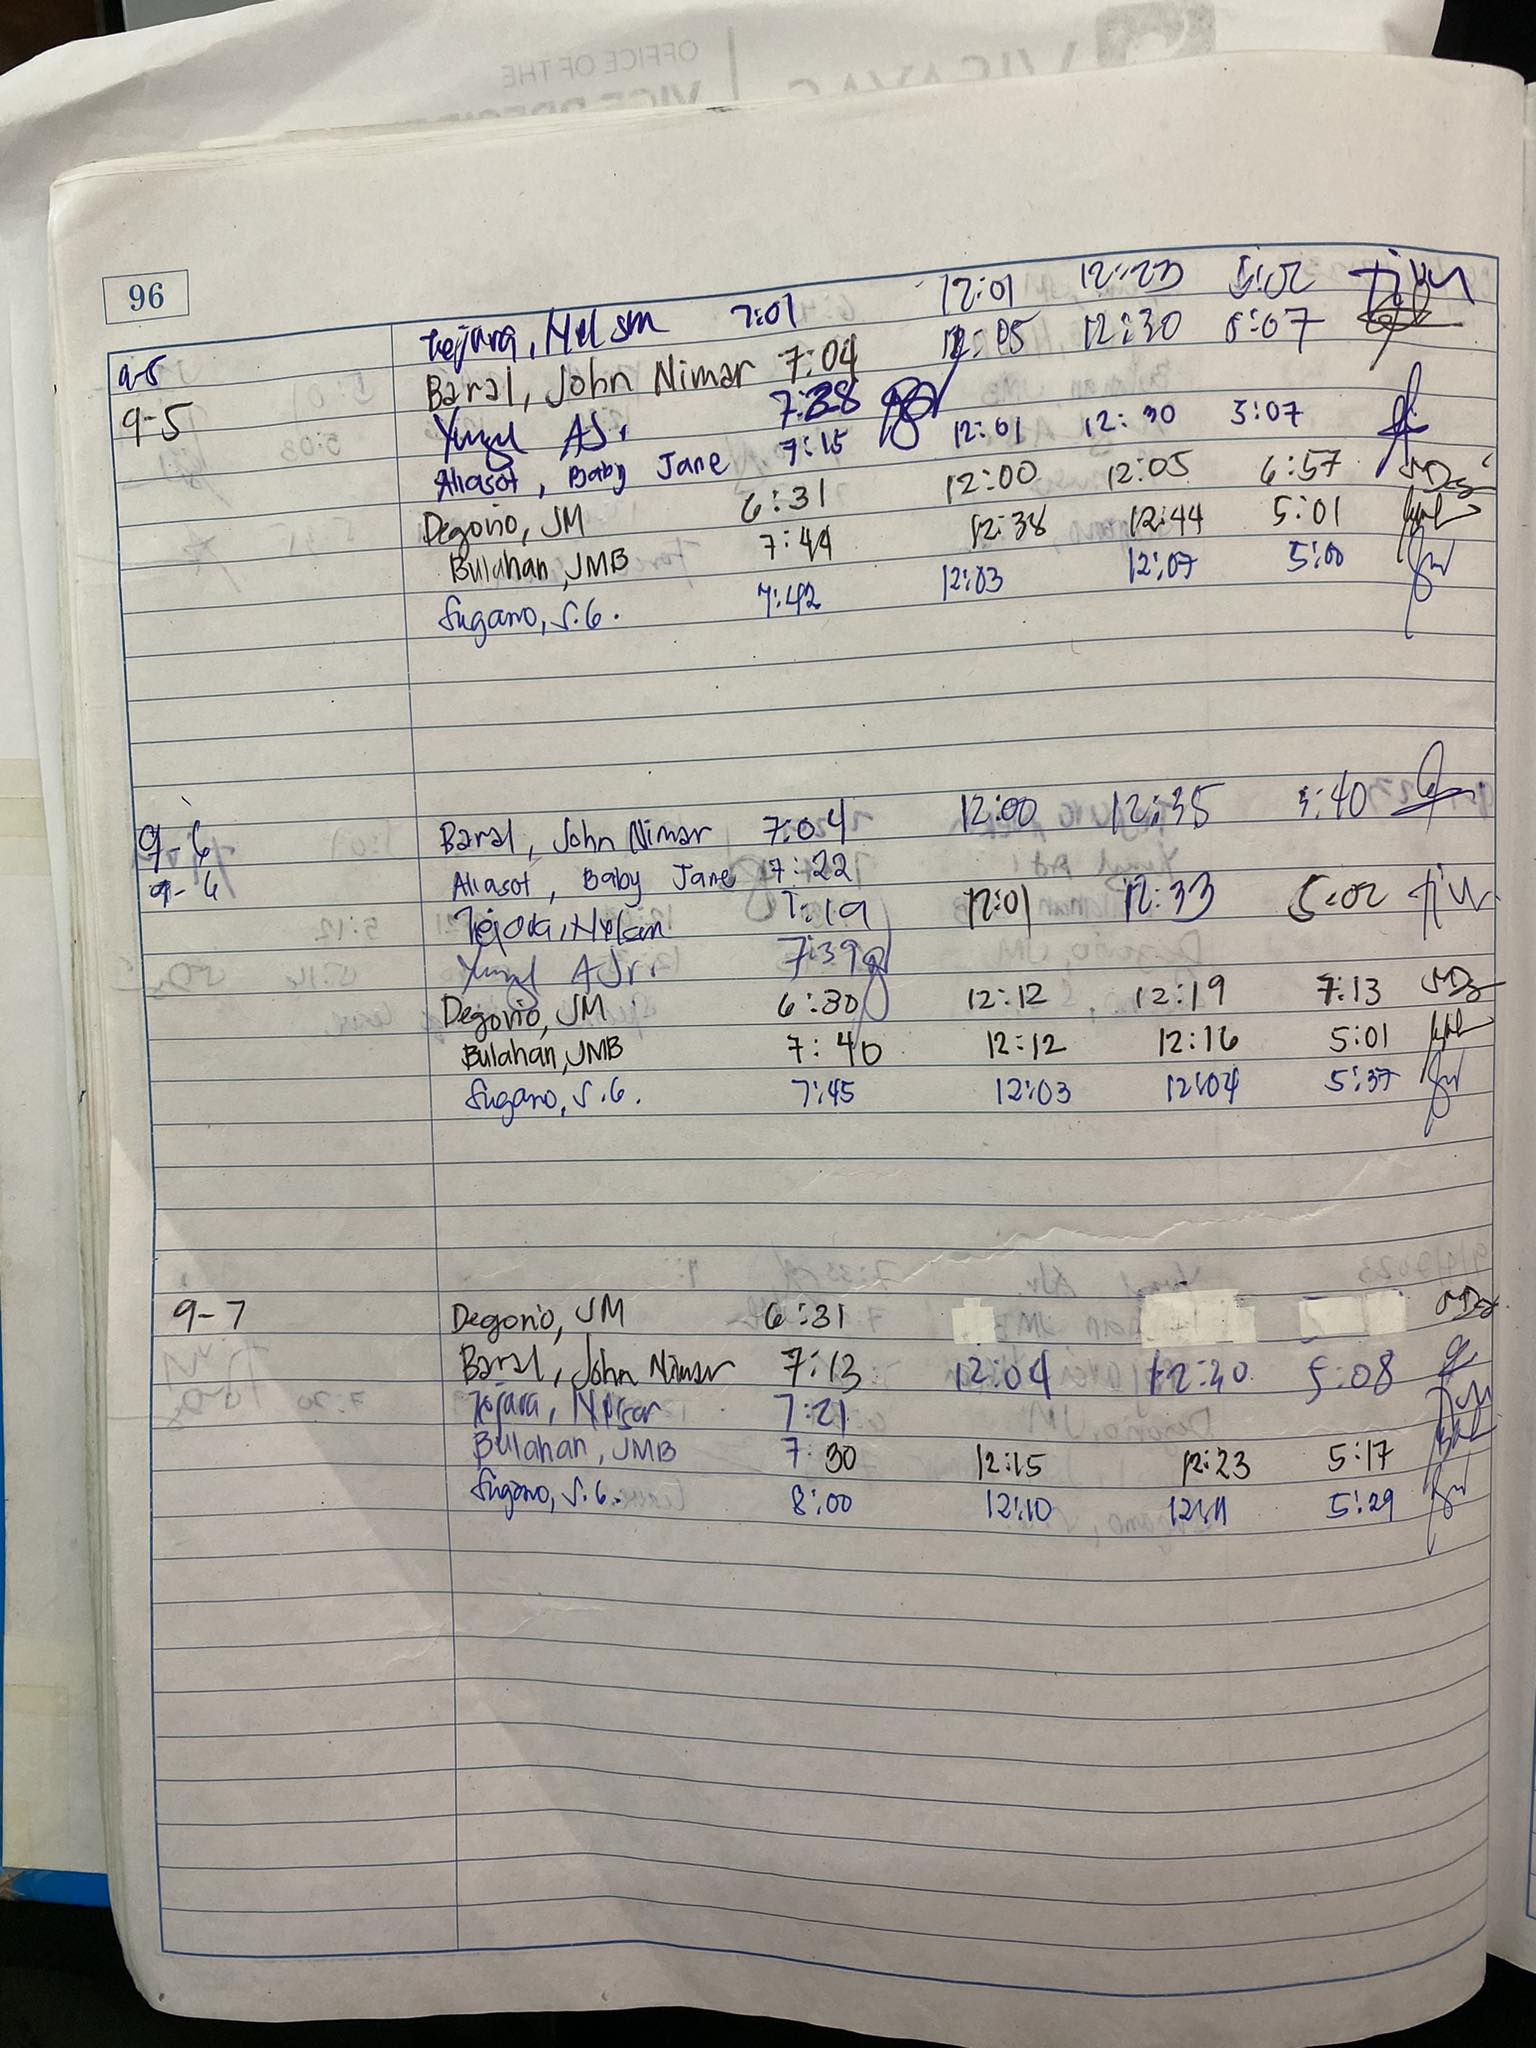 OFFICE OF THE
96
9-5 Tejara, Nelson 7:01 12:01 12:23 5:02
9-5 Baral, John Nimar 7:04 12:05 12:30 5:07
AJ. 7:28
Aliasot, Baby Jane 7:15 12:01 12:30 5:07
Degorio, JM 6:31 12:00 12:05 6:57
Bulahan, JMB 7:44 12:38 12:44 5:01
Sugano, S.G. 7:42 12:03 12:07 5:00
9-6 Baral, John Nimar 7:04 12:00 12:35 5:40
9-6 Aliasot, Baby Jane 7:22
Tejara, Nelson 7:19 12:01 12:33 5:02
AJr. 7:39
Degorio, JM 6:30 12:12 12:19 7:13
Bulahan, JMB 7:40 12:12 12:16 5:01
Sugano, S.G. 7:45 12:03 12:04 5:37
9-7 Degorio, JM 6:31
Baral, John Nimar 7:13 12:04 12:20 5:08
Tejara, 7:21
Bulahan, JMB 7:30 12:15 12:23 5:17
Sugano, S.G. 8:00 12:10 12:11 5:29